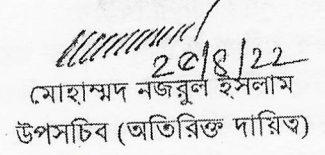 মোহাম্মদ নজরুল ইসলাম
উপসচিব (অতিরিক্ত দায়িত্ব)